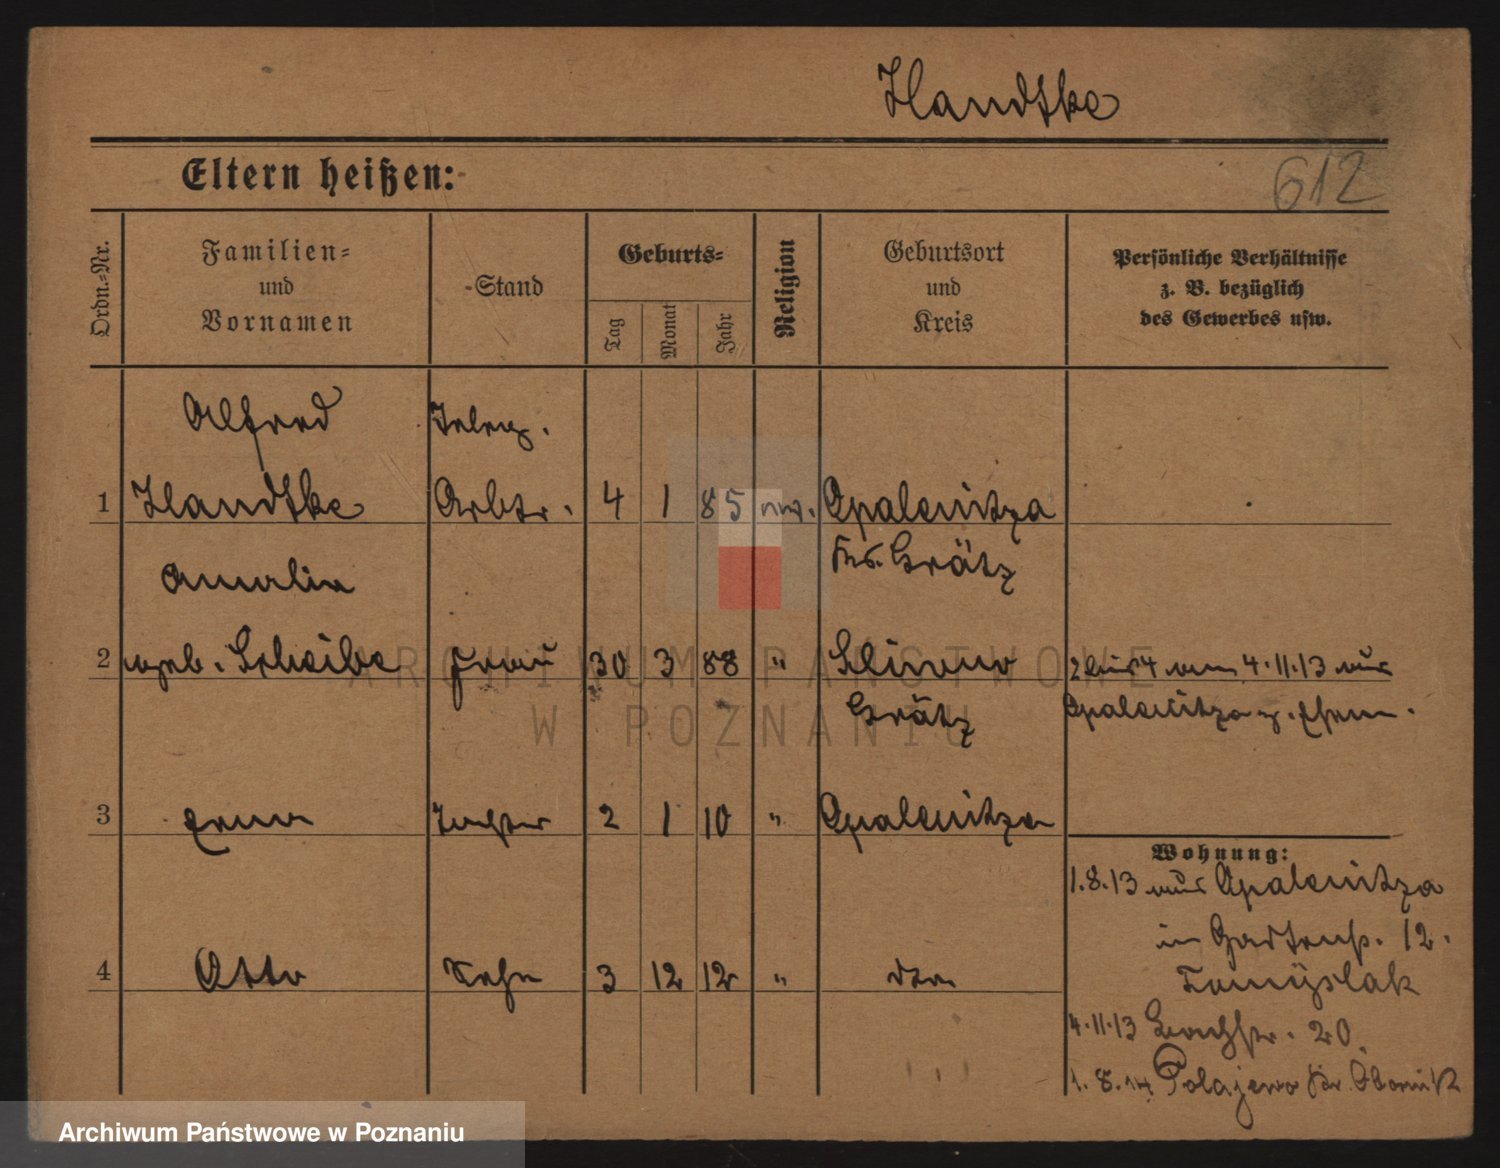 Handtke
612
Eltern heißen:
Ordn.-Nr.
Familien-
und
Vornamen
Stand
Geburts-
Tag
Monat
Jahr
Religion
Geburtsort
und
Kreis
Persönliche Verhältnisse
z. B. bezüglich
des Gewerbes usw.
Alfred Telegr.
1 Handtke Arbtr. 4 1 85 Opalenitza
Krs. Grätz
Amalie
2 geb. Scheibe Frau 30 3 88 " 2 bis 4 am 4.11.13 aus
Grätz Opalenitza z. Ehem.
3 Erna Tochter 2 1 10 " Opalenitza
Wohnung:
1.8.13 aus Opalenitza
in Gartenstr. 12.
4 Otto Sohn 3 12 12 " dto
Tomyslak
4.11.13 20
1.8.14 Polajewo Kr. Obornik
ARCHIWUM PAŃSTWOWE
W POZNANIU
Archiwum Państwowe w Poznaniu